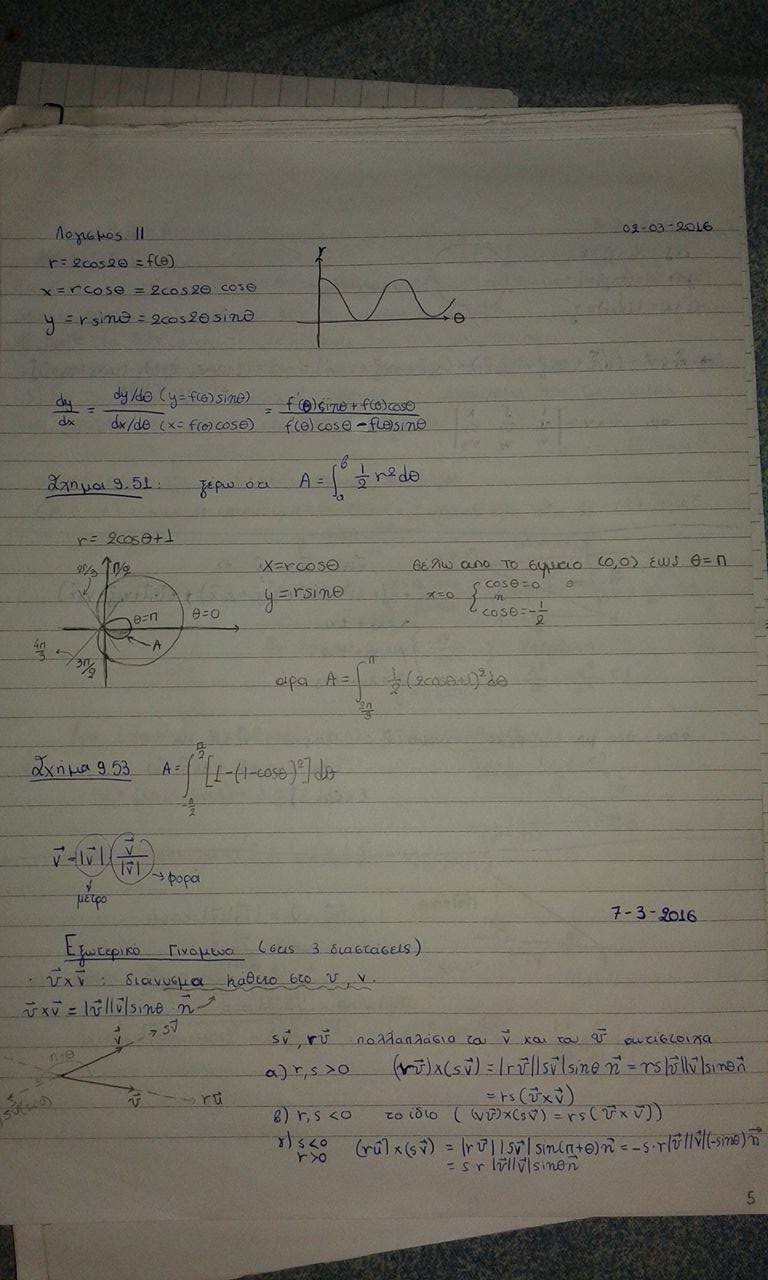 Λογισμος ΙΙ
02-03-2016
r = 2cos2θ = f(θ)
x = rcosθ = 2cos2θ cosθ
y = rsinθ = 2cos2θ sinθ
r
θ
dy/dx = dy/dθ (y=f(θ)sinθ) / dx/dθ (x=f(θ)cosθ) = f'(θ)sinθ + f(θ)cosθ / f'(θ)cosθ - f(θ)sinθ
Σχημα 9.51: ξερω οτι A = ∫_α^β 1/2 r² dθ
r = 2cosθ+1
2π/3 π/2
θ=π θ=0
A
4π/3
3π/2
x=rcosθ
y=rsinθ
θελω απο το σημειο (0,0) εως θ=π
x=0 { cosθ=0 η cosθ=-1/2
αρα A = ∫_{2π/3}^π 1/2 (2cosθ+1)² dθ
Σχήμα 9.53 A = ∫_{-π/2}^{π/2} [1-(1-cosθ)²] dθ
v⃗ = |v⃗| v⃗/|v⃗| → φορα
μετρο
7-3-2016
Εξωτερικο Γινομενο (στις 3 διαστάσεις)
· υ⃗ x v⃗ : διανυσμα καθετο στο υ, v.
υ⃗ x v⃗ = |υ⃗||v⃗|sinθ n⃗
v⃗ sv⃗
π+θ
υ⃗ ru⃗
sv⃗, rυ⃗ πολλαπλάσια του v⃗ και του υ⃗ αντιστοιχα
α) r, s > 0 (rυ⃗)x(sv⃗) = |rυ⃗||sv⃗| sinθ n⃗ = rs|υ⃗||v⃗|sinθn⃗
= rs(υ⃗xv⃗)
β) r, s < 0 το ιδιο ( (rυ⃗)x(sv⃗) = rs(υ⃗xv⃗))
γ) s<0 r>0 (ru⃗)x(sv⃗) = |rυ⃗||sv⃗| sin(π+θ)n⃗ = -s·r|υ⃗||v⃗|(-sinθ)n⃗
= s r |υ⃗||v⃗|sinθn⃗
5